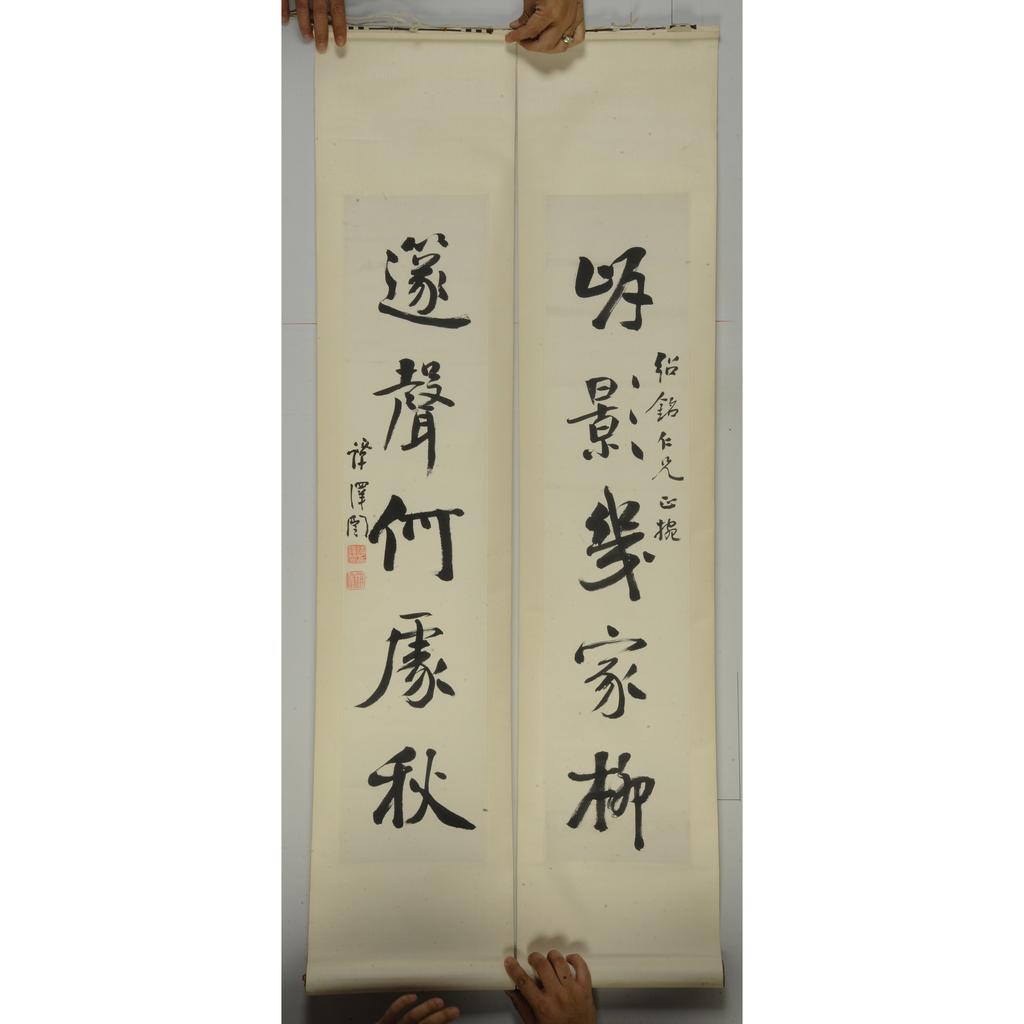 影幾家柳
紹銘仁兄正捥
篴聲何處秋
譚澤闓